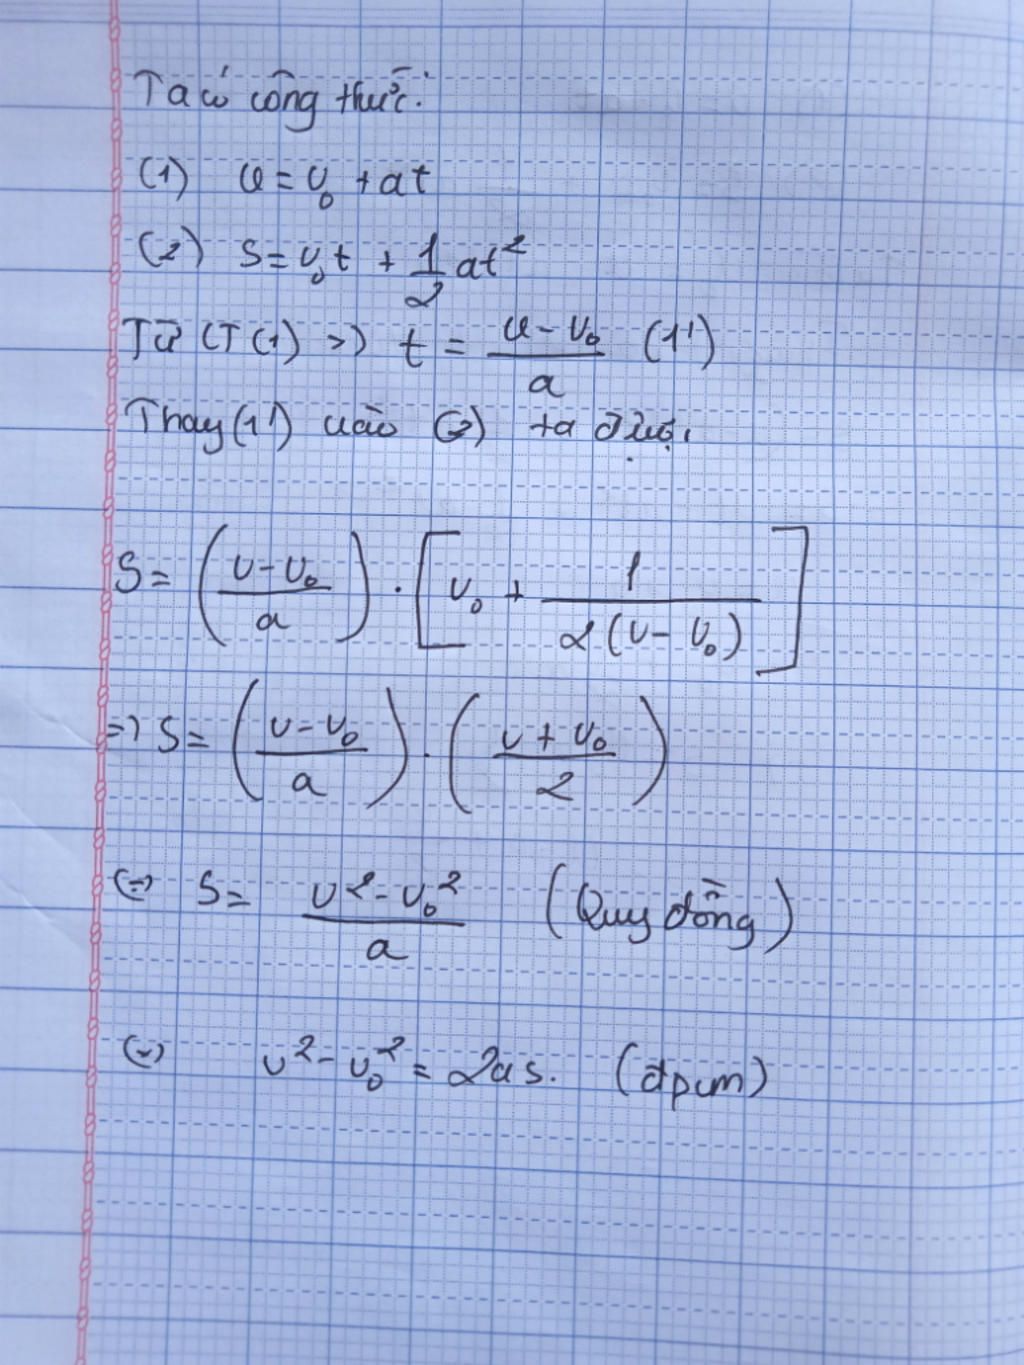 Ta có công thức:
(1) v = v₀ + at
(2) S = v₀t + 1/2 at²
Từ CT(1) => t = (v - v₀)/a (1')
Thay (1') vào (2) ta được
S = ((v - v₀)/a) · [v₀ + 1/(2(v - v₀))]
=> S = ((v - v₀)/a) · ((v + v₀)/2)
<=> S = (v² - v₀²)/a (Quy đồng)
<=> v² - v₀² = 2as. (đpcm)